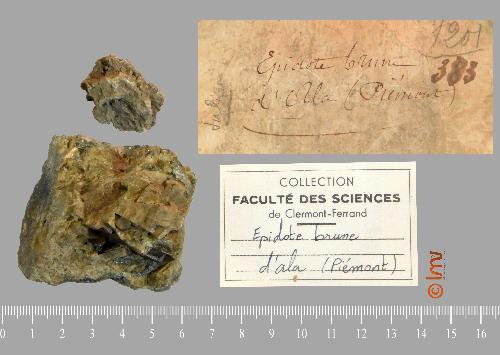 1201
Epidote brune
383
d'Ala (Piémont)
COLLECTION
FACULTÉ DES SCIENCES
de Clermont-Ferrand
Epidote brune
d'ala (Piémont)
© lmv
0 1 2 3 4 5 6 7 8 9 10 11 12 13 14 15 16